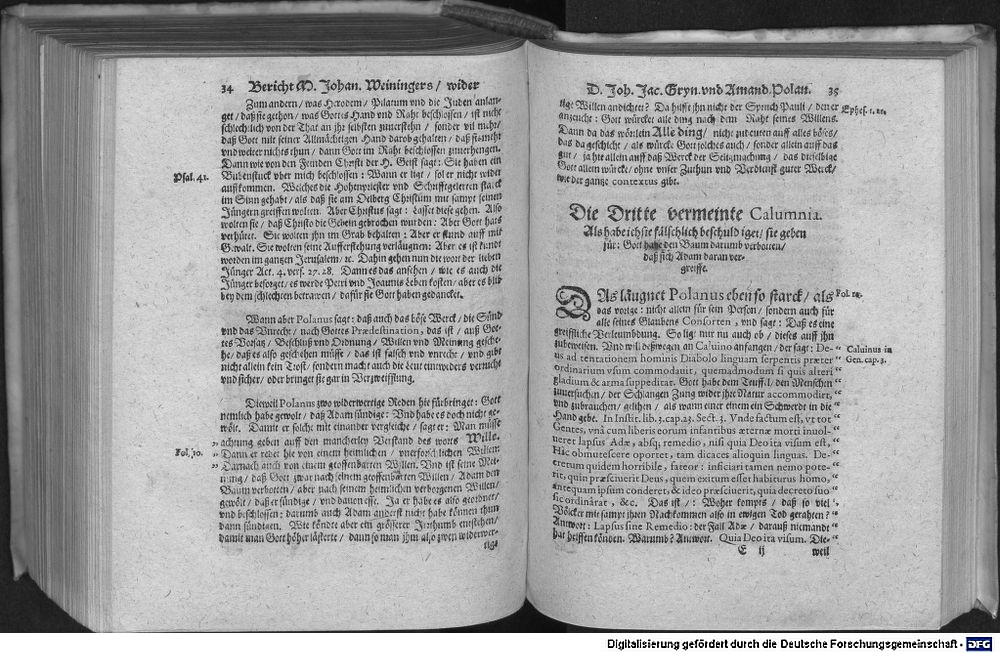 34 Bericht M. Johan. Weiningers / wider
Zum andern / was Herodem / Pilatum vnd die Juden anlan-
get / daß sie gethon / was Gottes Hand vnd Raht beschlossen / ist nicht
schlechtlich von der That an jhr selbsten zuuerstehn / sonder vil mehr /
daß Gott mit seiner Allmächtigen Hand darob gehalten / daß sie nicht
vnd weiter nichts thun / dann Gott im Raht beschlossen zuuerhengen.
Dann wie von den Feinden Christi der H. Geist sagt: Sie haben ein
Psal. 41.
Bubenstuck vber mich beschlossen: Wann er ligt / sol er nicht wider
auffkommen. Welches die Hohenpriester vnd Schrifftgelerten starck
im Sinn gehabt / als daß sie am Oelberg Christum mit sampt seinen
Jüngern greiffen wolten. Aber Christus sagt: Lasset diese gehen. Also
wolten sie / daß Christo die Gebein gebrochen wurden: Aber Gott hats
verhütet. Sie wolten jhn im Grab behalten: Aber er stund auff mit
Gwalt. Sie wolten seine Aufferstehung verläugnen: Aber es ist kundt
worden im gantzen Jerusalem / ꝛc. Dahin gehen nun die wort der lieben
Jünger Act. 4. vers. 27. 28. Dann es das ansehen / wie es auch die
Jünger besorget / es werde Petri vnd Joannis Leben kosten / aber es blib
bey dem schlechten betrawen / dafür sie Gott haben gedancket.
Wann aber Polanus sagt: daß auch das böse Werck / die Sünd
vnd das Vnrecht / nach Gottes Prædestination, das ist / auß Got-
tes Vorsatz / Beschluß vnd Ordnung / Willen vnd Meinung gesche-
he / daß es also geschehen müsse / das ist falsch vnd vnrecht / vnd gibt
nicht allein kein Trost / sondern macht auch die Leut eintweders verrucht
vnd sicher / oder bringet sie gar in Verzweifflung.
Dieweil Polanus zwo widerwertige Reden hie fürbringet: Gott
nemlich habe gewolt / daß Adam sündige: Vnd habe es doch nicht ge-
wölt. Damit er solche mit einander vergleiche / sagt er: Man müsse
achtung geben auff den mancherley Verstand des worts Wills.
Fol. 30.
„ Dann er rede hie von einem heimlichen / vnerforschlichen Willen:
„ Darnach auch von einem geoffenbarten Willen. Vnd ist seine Mei-
nung / daß Gott zwar nach seinem geoffenbarten Willen / Adam den
Baum verbotten / aber nach seinem heimlichen verborgenen Willen /
gewölt / daß er sündige / vnd dauon esse. Ja er habe es also geordnet /
vnd beschlossen: darumb auch Adam anderst nicht habe können thun
dann sündigen. Wie köndte aber ein grösserer Irrthumb entstehen /
damit man Gott höher lästerte / dann so man jhm also zwen widerwer-
tige
D. Joh. Jac. Gryn. vnd Amand. Polan. 35
tige Willen andichtet? Da hilfft jhn nicht der Spruch Pauli / den er
Ephes. 1. 11.
anzeucht: Gott würcket alle ding nach dem Raht seines Willens.
Dann da das wörtlein Alle ding / nicht zudeuten auff alles böses /
das da geschicht / als würcke Gott solches auch / sonder allein auff das
gut / ja hie allein auff daß Werck der Seligmachung / das dieselbige
Gott allein würcke / ohne vnser Zuthun vnd Verdienst guter Werck /
wie der gantze contextus gibt.
Die Dritte vermeinte Calumnia.
Als habe ich sie fälschlich beschuldiget / sie geben
für: Gott habe den Baum darumb verbotten /
daß sich Adam daran ver-
greiffe.
DAs läugnet Polanus eben so starck / als
das vorige: nicht allein für sein Person / sondern auch für
alle seines Glaubens Consorten, vnd sagt: Daß es eine
greiffliche Verleumbdung. So ligt nur nu auch ob / dieses auff jhn
zubeweisen. Vnd wil deßwegen an Caluino anfangen / der sagt: De-
Caluinus in
Gen. cap. 3.
us ad tentationem hominis Diabolo linguam serpentis præter
ordinarium vsum commodauit, quemadmodum si quis alteri
gladium & arma suppeditat. Gott habe dem Teuffel / den Menschen
zuuersuchen / der Schlangen Zung wider jhre Natur accommodirt,
vnd zubrauchen / gelihen / als wann einer einem ein Schwerdt in die
Hand gebe. In Instit. lib. 3. cap. 23. Sect. 3. Vnde factum est, vt tot
Gentes, vnà cum liberis eorum infantibus æternæ morti inuol-
ueret lapsus Adæ, absq; remedio, nisi quia Deo ita visum est,
Hîc obmutescere oportet, tam dicaces alioquin linguas. De-
cretum quidem horribile, fateor: inficiari tamen nemo pote-
rit, quin præsciuerit Deus, quem exitum esset habiturus homo,
antequam ipsum conderet, & ideo præsciuerit, quia decreto suo
sic ordinârat, &c. Das ist / : Woher kompts / daß so viel
Völcker mit sampt jhren Nachkommen also in ewigen Tod gerahten?
Antwort: Lapsus sine Remedio: der Fall Adæ / darauß niemandt
hat helffen können. Warumb? Antwort. Quia Deo ita visum. Die-
E ij weil
Digitalisierung gefördert durch die Deutsche Forschungsgemeinschaft - DFG